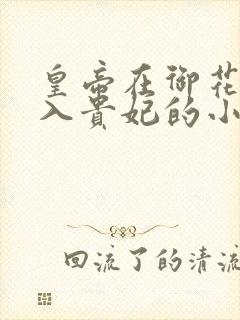 皇帝在御花
入贵妃的小
回流了的清流